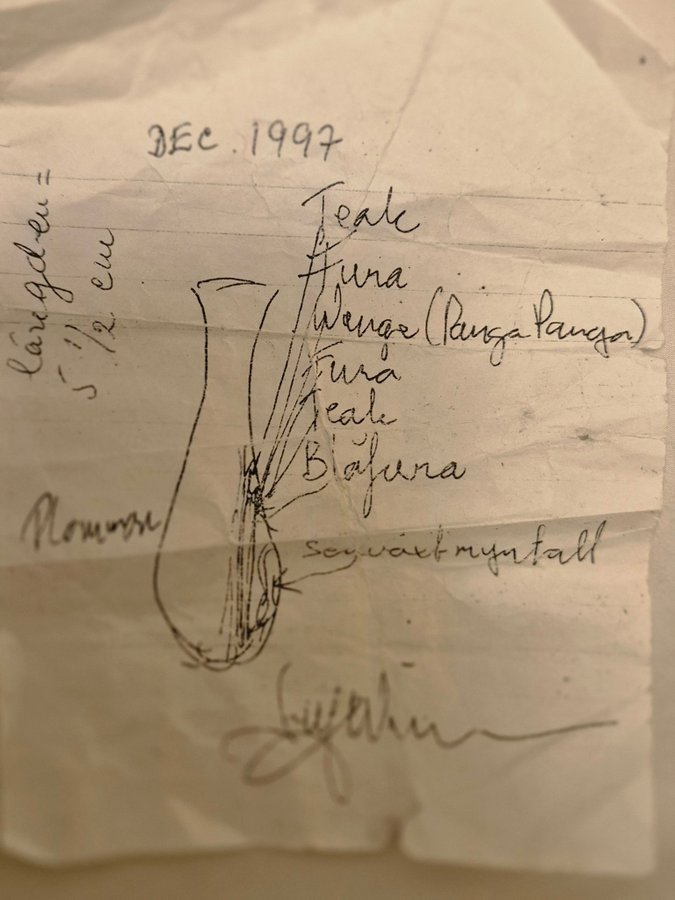 DEC. 1997
längden =
5 1/2 cm
Teak
Fura
Wenge (Panga Panga)
Fura
Teak
Blåfura